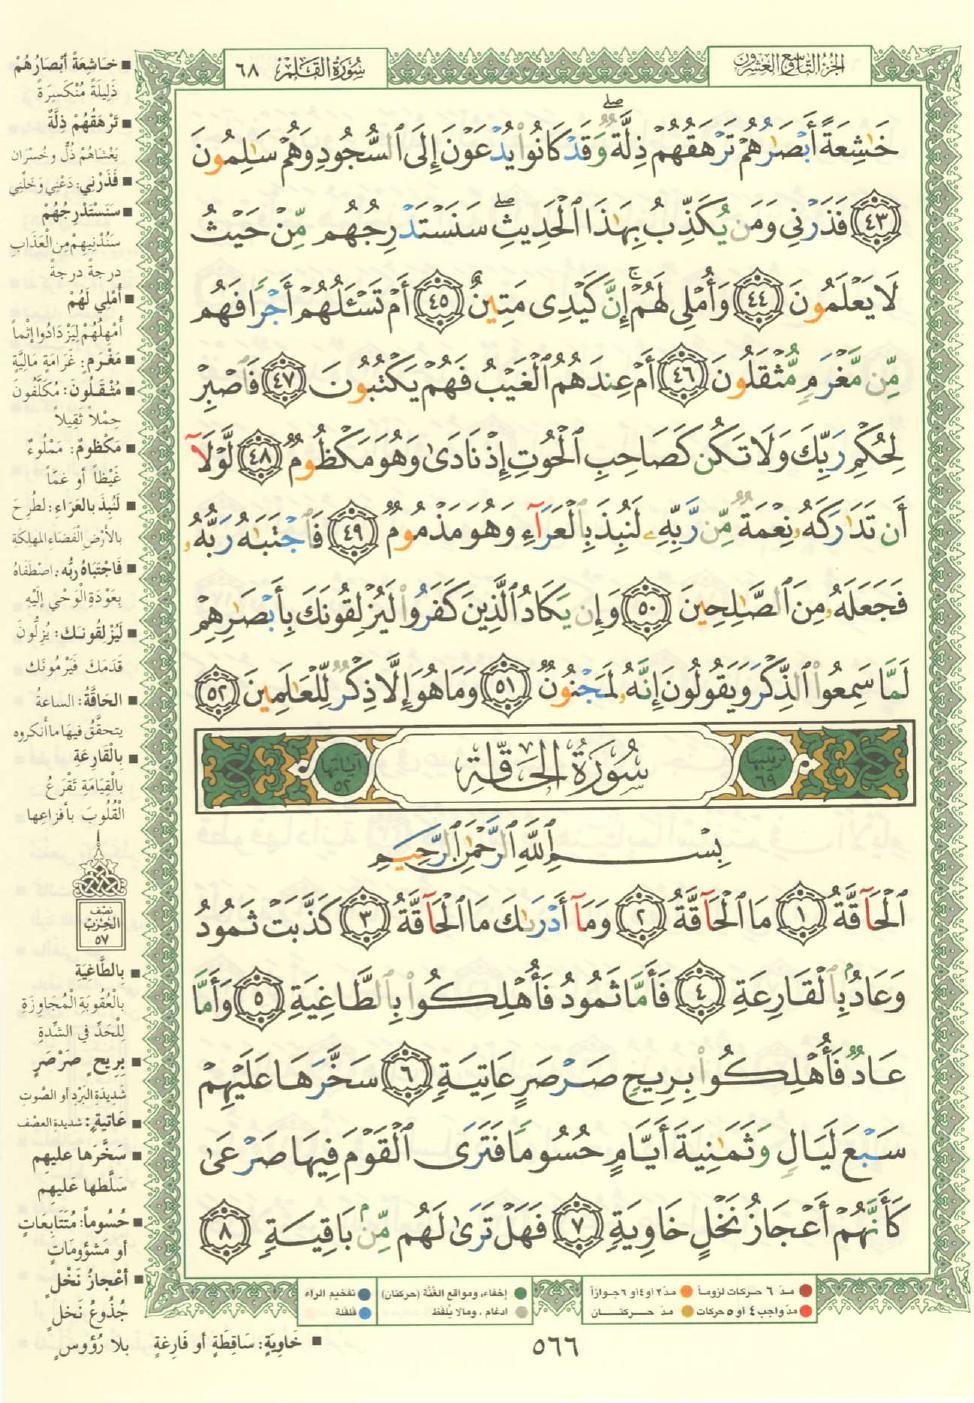 الجزء التاسع والعشرون
سورة القلم ٦٨
خَٰشِعَةً أَبْصَٰرُهُمْ تَرْهَقُهُمْ ذِلَّةٌ ۖ وَقَدْ كَانُوا۟ يُدْعَوْنَ إِلَى ٱلسُّجُودِ وَهُمْ سَٰلِمُونَ
٤٣ فَذَرْنِى وَمَن يُكَذِّبُ بِهَٰذَا ٱلْحَدِيثِ ۖ سَنَسْتَدْرِجُهُم مِّنْ حَيْثُ
لَا يَعْلَمُونَ ٤٤ وَأُمْلِى لَهُمْ ۚ إِنَّ كَيْدِى مَتِينٌ ٤٥ أَمْ تَسْـَٔلُهُمْ أَجْرًا فَهُم
مِّن مَّغْرَمٍ مُّثْقَلُونَ ٤٦ أَمْ عِندَهُمُ ٱلْغَيْبُ فَهُمْ يَكْتُبُونَ ٤٧ فَٱصْبِرْ
لِحُكْمِ رَبِّكَ وَلَا تَكُن كَصَاحِبِ ٱلْحُوتِ إِذْ نَادَىٰ وَهُوَ مَكْظُومٌ ٤٨ لَّوْلَآ
أَن تَدَٰرَكَهُۥ نِعْمَةٌ مِّن رَّبِّهِۦ لَنُبِذَ بِٱلْعَرَآءِ وَهُوَ مَذْمُومٌ ٤٩ فَٱجْتَبَٰهُ رَبُّهُۥ
فَجَعَلَهُۥ مِنَ ٱلصَّٰلِحِينَ ٥٠ وَإِن يَكَادُ ٱلَّذِينَ كَفَرُوا۟ لَيُزْلِقُونَكَ بِأَبْصَٰرِهِمْ
لَمَّا سَمِعُوا۟ ٱلذِّكْرَ وَيَقُولُونَ إِنَّهُۥ لَمَجْنُونٌ ٥١ وَمَا هُوَ إِلَّا ذِكْرٌ لِّلْعَٰلَمِينَ ٥٢
ترتيبها ٦٩
سُورَةُ الحَاقَّة
آياتها ٥٢
بِسْمِ ٱللَّهِ ٱلرَّحْمَٰنِ ٱلرَّحِيمِ
ٱلْحَآقَّةُ ١ مَا ٱلْحَآقَّةُ ٢ وَمَآ أَدْرَىٰكَ مَا ٱلْحَآقَّةُ ٣ كَذَّبَتْ ثَمُودُ
وَعَادٌۢ بِٱلْقَارِعَةِ ٤ فَأَمَّا ثَمُودُ فَأُهْلِكُوا۟ بِٱلطَّاغِيَةِ ٥ وَأَمَّا
عَادٌ فَأُهْلِكُوا۟ بِرِيحٍ صَرْصَرٍ عَاتِيَةٍ ٦ سَخَّرَهَا عَلَيْهِمْ
سَبْعَ لَيَالٍ وَثَمَٰنِيَةَ أَيَّامٍ حُسُومًا فَتَرَى ٱلْقَوْمَ فِيهَا صَرْعَىٰ
كَأَنَّهُمْ أَعْجَازُ نَخْلٍ خَاوِيَةٍ ٧ فَهَلْ تَرَىٰ لَهُم مِّنۢ بَاقِيَةٍ ٨
■ خَاشِعَةً أَبْصَارُهُمْ
ذَلِيلَةً مُنْكَسِرَةً
■ تَرْهَقُهُمْ ذِلَّةٌ
يَغْشَاهُمْ ذُلٌّ وخُسْرَان
■ فَذَرْنِي: دَعْنِي وَخَلِّنِي
■ سَنَسْتَدْرِجُهُمْ
سَنُدْنِيهِمْ مِنَ العَذَابِ
درجةً درجةً
■ أُمْلِي لَهُمْ
أُمْهِلُهُمْ لِيَزْدَادُوا إِثْماً
■ مَغْرَمٍ: غَرَامَةٍ مَالِيَّةٍ
■ مُثْقَلُونَ: مُكَلَّفُونَ
حِمْلاً ثَقِيلاً
■ مَكْظُومٌ: مَمْلُوءٌ
غَيْظاً أو غمّاً
■ لَنُبِذَ بالعَرَاءِ: لَطُرِحَ
بالأرْضِ الفَضَاءِ المهلِكةِ
■ فَاجْتَبَاهُ ربُّه: اصْطَفَاهُ
بِعَوْدَةِ الوَحْيِ إليْهِ
■ لَيُزْلِقُونَكَ: يُزِلُّونَ
قَدَمَكَ فَيَرْمُونَكَ
■ الحَاقَّةُ: السـاعةُ
يتحقَّقُ فيهَا ما أنكروه
■ بالْقَارِعَةِ
بالْقِيَامَةِ تَقْرَعُ
القُلُوبَ بأفزاعِها
نصف
الحزب
٥٧
■ بالطَّاغِيَةِ
بالعُقُوبَةِ المُجَاوِزَةِ
لِلْحَدِّ في الشِّدةِ
■ بِرِيحٍ صَرْصَرٍ
شَدِيدَةِ البَرْدِ أو الصَّوْتِ
■ عَاتِيَةٍ: شديدة العَصْفِ
■ سَخَّرَها عليهِم
سَلَّطها عَليهِم
■ حُسُوماً: مُتَتَابِعَاتٍ
أو مَشْؤُومَاتٍ
■ أعْجَازُ نَخْلٍ
جُذُوعُ نَخلٍ
بلا رُؤُوسٍ
■ خَاوِيَةٍ: سَاقِطَةٍ أو فَارِغةٍ
مدّ ٦ حركات لزوماً
مدّ ٢ أو ٤ أو ٦ جوازاً
مدّ واجب ٤ أو ٥ حركات
مدّ حركتان
إخفاء، ومواقع الغُنَّة (حركتان)
ادغام، ومالا يُلفَظ
تفخيم الراء
قلقلة
٥٦٦